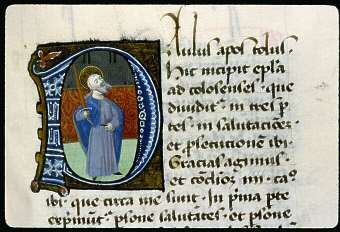 Aulus apostolus.
hic incipit epla
ad colosenses. que
dividit in tres p
tes. in salutacionez.
et psecutionem ibi.
Gracias agimus.
et conclioz im. ca°
ibi. que circa me sunt. In prima pte
exprimit psone salutates. et psone